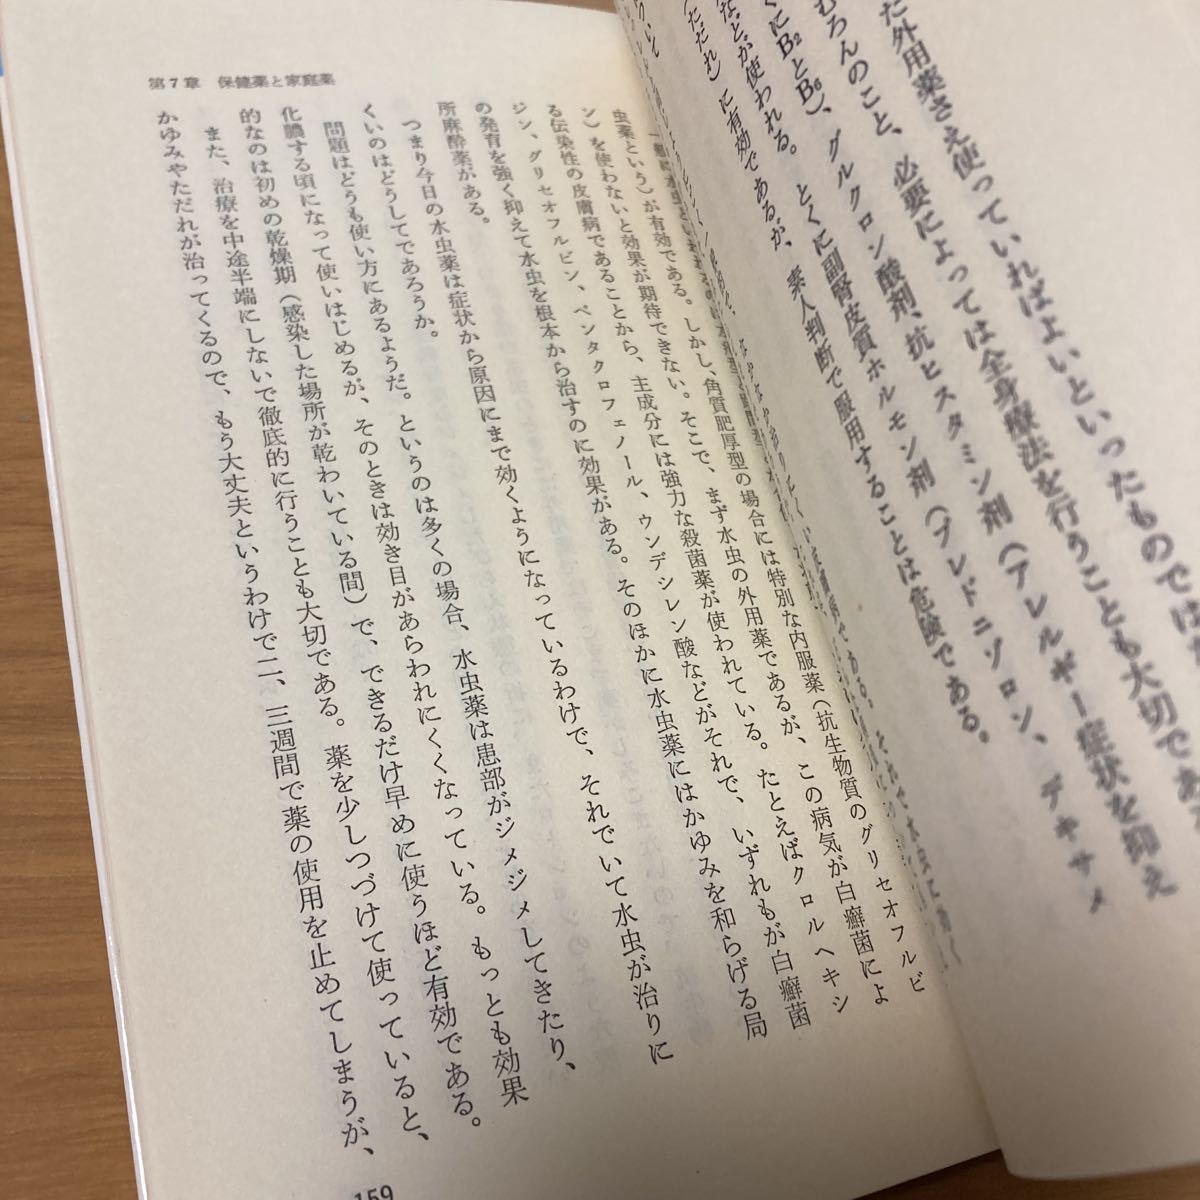 た外用薬さえ使っていればよいといったものでは
むろんのこと、必要によっては全身療法を行うことも大切であ
くにB₂とB₆)、グルクロン酸剤、抗ヒスタミン剤(アレルギー症状を抑え
などが使われる。とくに副腎皮質ホルモン剤(プレドニゾロン、デキサメ
ただれ)に有効であるが、素人判断で服用することは危険である。
第7章 保健薬と家庭薬
虫薬という)が有効である。しかし、角質肥厚型の場合には特別な内服薬(抗生物質のグリセオフルビ
ン)を使わないと効果が期待できない。そこで、まず水虫の外用薬であるが、この病気が白癬菌によ
る伝染性の皮膚病であることから、主成分には強力な殺菌薬が使われている。たとえばクロルヘキシ
ジン、グリセオフルビン、ペンタクロフェノール、ウンデシレン酸などがそれで、いずれもが白癬菌
の発育を強く抑えて水虫を根本から治すのに効果がある。そのほかに水虫薬にはかゆみを和らげる局
所麻酔薬がある。
つまり今日の水虫薬は症状から原因にまで効くようになっているわけで、それでいて水虫が治りに
くいのはどうしてであろうか。
問題はどうも使い方にあるようだ。というのは多くの場合、水虫薬は患部がジメジメしてきたり、
化膿する頃になって使いはじめるが、そのときは効き目があらわれにくくなっている。もっとも効果
的なのは初めの乾燥期(感染した場所が乾わいている間)で、できるだけ早めに使うほど有効である。
また、治療を中途半端にしないで徹底的に行うことも大切である。薬を少しつづけて使っていると、
かゆみやただれが治ってくるので、もう大丈夫というわけで二、三週間で薬の使用を止めてしまうが、
159